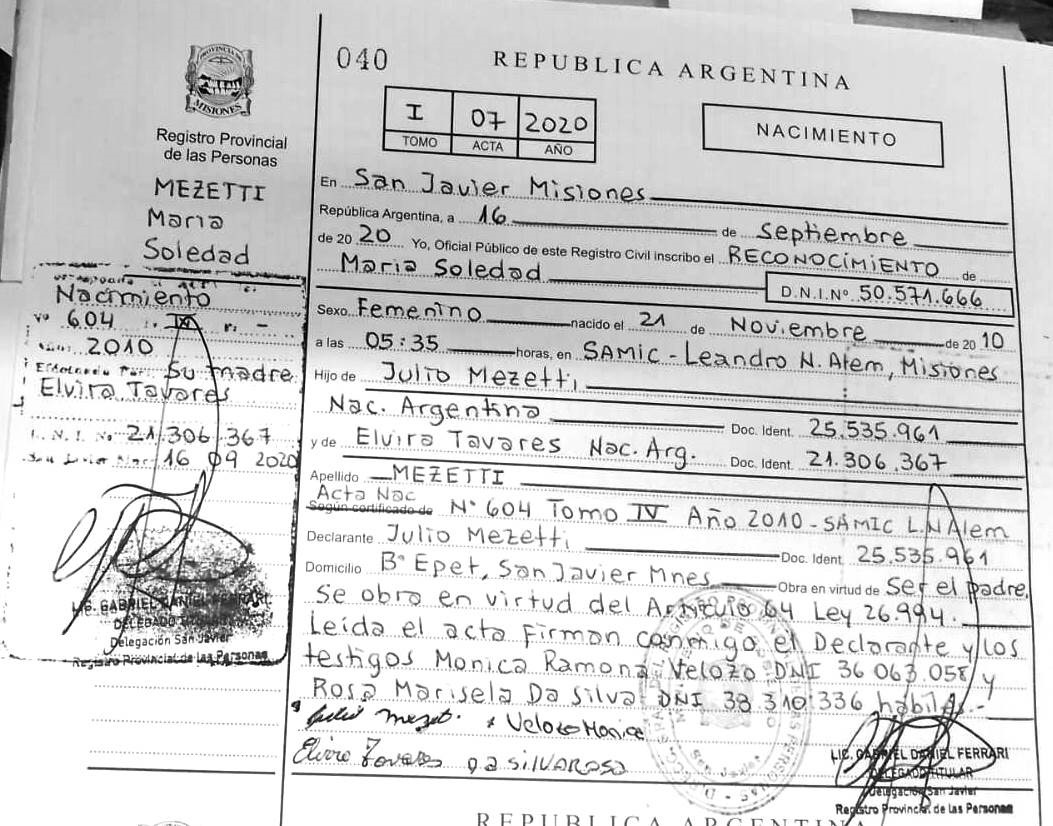 PROVINCIA DE
MISIONES
Registro Provincial
de las Personas
MEZETTI
Maria
Soledad
Nacimiento
Nº 604 IV F. -
2010
Su madre
Elvira Tavares
D.N.I. Nº 21.306.367
16 09 2020
LIC. GABRIEL DANIEL FERRARI
DELEGADO TITULAR
Delegación San Javier
Registro Provincial de las Personas
040
REPUBLICA ARGENTINA
I 07 2020
TOMO ACTA AÑO
NACIMIENTO
En San Javier Misiones
República Argentina, a 16 de Septiembre
de 20 20 Yo, Oficial Público de este Registro Civil inscribo el RECONOCIMIENTO de
Maria Soledad
D.N.I.Nº 50.571.666
Sexo Femenino nacido el 21 de Noviembre de 20 10
a las 05:35 horas, en SAMIC - Leandro N. Alem, Misiones
Hijo de Julio Mezetti
Nac. Argentina Doc. Ident. 25.535.961
y de Elvira Tavares Nac. Arg. Doc. Ident. 21.306.367
Apellido MEZETTI
Acta Nac
Según certificado de Nº 604 Tomo IV Año 2010 - SAMIC L.N Alem
Declarante Julio Mezetti Doc. Ident. 25.535.961
Domicilio Bº Epet, San Javier Mnes Obra en virtud de Ser el padre.
Se obra en virtud del Articulo 64 Ley 26.994.
Leida el acta Firman conmigo el Declarante y los
testigos Monica Ramona Velozo DNI 36 063 058 y
Rosa Marisela Da Silva DNI 38 310 336 habiles.-
Veloso Monica
Elvira Tavares Da SILVA ROSA
LIC. GABRIEL DANIEL FERRARI
DELEGADO TITULAR
Delegación San Javier
Registro Provincial de las Personas
REPUBLICA ARGENTINA